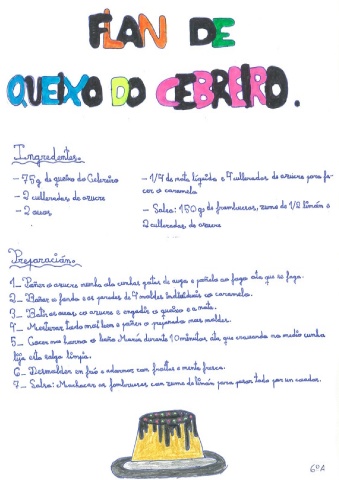 FLAN DE
QUEIXO DO CEBREIRO.
Ingredentes.
- 75g de queixo do Cebreiro
- 2 culleradas de azucre
- 2 ovos
- 1/4 de nata líquida e 4 culleradas de azucre para fa-
cer o caramelo
- Salsa: 150 gs de framboesas, zume de 1/2 limón e
2 culleradas de azucre
Preparación.
1_ Poñer o azucre nunha ola cunhas gotas de auga e poñelo ao fogo ata que se faga.
2_ Bañar o fondo e as paredes de 4 moldes individuais co caramelo.
3_ Batir os ovos, co azucre e engadir o queixo e a nata.
4_ Mesturar todo moi ben e poñer o preparado nos moldes.
5_ Cocer no horno o baño María durante 10 minutos, ata que cravando no medio cunha
lla esta salga limpia.
6_ Desmoldar en frío e adornar con froitos e menta fresca.
7_ Salsa: Machacar as framboesas con zume de limón para pasar todo por un coador.
6º A